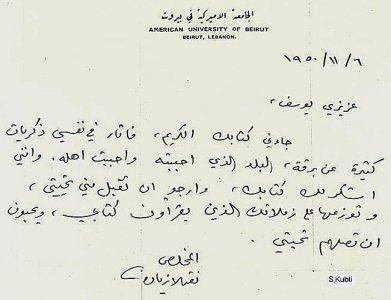 الجامعة الاميركية في بيروت
AMERICAN UNIVERSITY OF BEIRUT
BEIRUT, LEBANON.
١٩٥٠/١١/٦
عزيزي يوسف،
جاءني كتابك الكريم، فاثار في نفسي ذكريات
كثيرة عن برقة، البلد الذي احببته واحببت اهله. وانني
اشكر لك كتابك، وارجو ان تقبل مني تحيتي،
وتوزعها على زملائك الذين يقرأون كتابي، ويحبون
ان تصلهم تحيتي.
المخلص
نقولا زيادة
S,Kubti